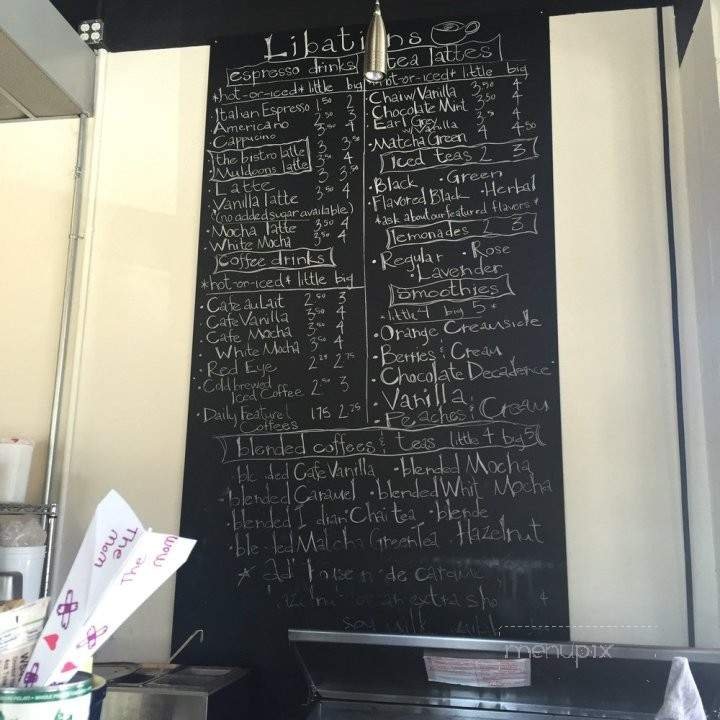 Libations
espresso drinks
*hot-or-iced* little big
• Italian Espresso 1.50 2
• Americano 2.50 3
• Cappucino 3.50 4
the bistro latte 3 3.50
Muldoons latte 3.50 4
• Latte 3 3.50
• Vanilla latte 3.50 4
(no added sugar available)
• Mocha latte 3.50 4
• White Mocha 3.50 4
coffee drinks
*hot-or-iced* little big
• Cafe au lait 2.50 3
• Cafe Vanilla 3.50 4
• Cafe Mocha 3.50 4
• White Mocha 3.50 4
• Red Eye 2.25 2.75
• Cold brewed
Iced Coffee 2.50 3
• Daily Feature
Coffees 1.75 2.25
tea lattes
hot-or-iced* little big
• Chai w/ Vanilla 3.50 4
• Chocolate Mint 3.50 4
• Earl Grey
w/ Vanilla 3.5 4
• Matcha Green 4 4.50
Iced teas 2 3
• Black • Green
• Flavored Black • Herbal
*ask about our featured flavors*
lemonades 2 3
• Regular • Rose
• Lavender
Smoothies
little 4 big 5
• Orange Creamsicle
• Berries & Cream
• Chocolate Decadence
• Vanilla
• Peaches & Cream
blended coffees & teas little 4 big 5
blended Cafe Vanilla • blended Mocha
• blended Caramel • blended White Mocha
• blended Indian Chai tea • blende
• blended Matcha Green Tea Hazelnut
* add house made
an extra shot
soy milk
The Mom
The Mom
menupix